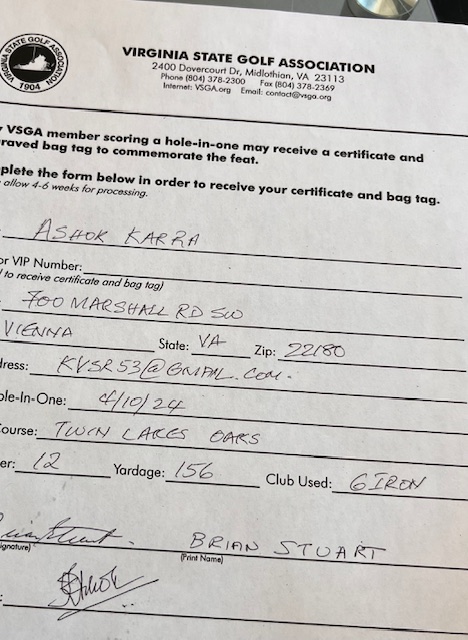 VIRGINIA STATE GOLF ASSOCIATION
1904
VIRGINIA STATE GOLF ASSOCIATION
2400 Dovercourt Dr, Midlothian, VA 23113
Phone (804) 378-2300 Fax (804) 378-2369
Internet: VSGA.org Email: contact@vsga.org
y VSGA member scoring a hole-in-one may receive a certificate and
raved bag tag to commemorate the feat.
plete the form below in order to receive your certificate and bag tag.
allow 4-6 weeks for processing.
ASHOK KARRA
or VIP Number:
to receive certificate and bag tag)
700 MARSHALL RD SW
VIENNA State: VA Zip: 22180
dress: KVSR53@GMAIL.COM.
ole-In-One: 4/10/24
Course: TWIN LAKES OAKS
er: 12 Yardage: 156 Club Used: 6 IRON
BRIAN STUART
ignature) (Print Name)